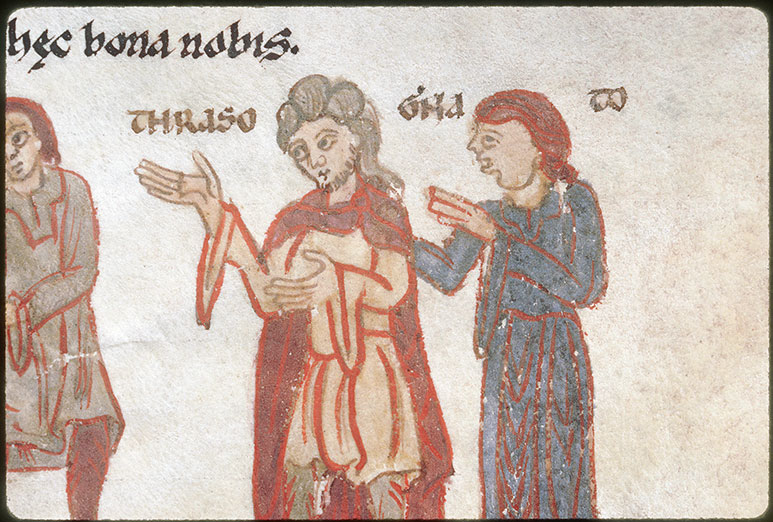 hęc bona nobis.
THRASO GNA TO